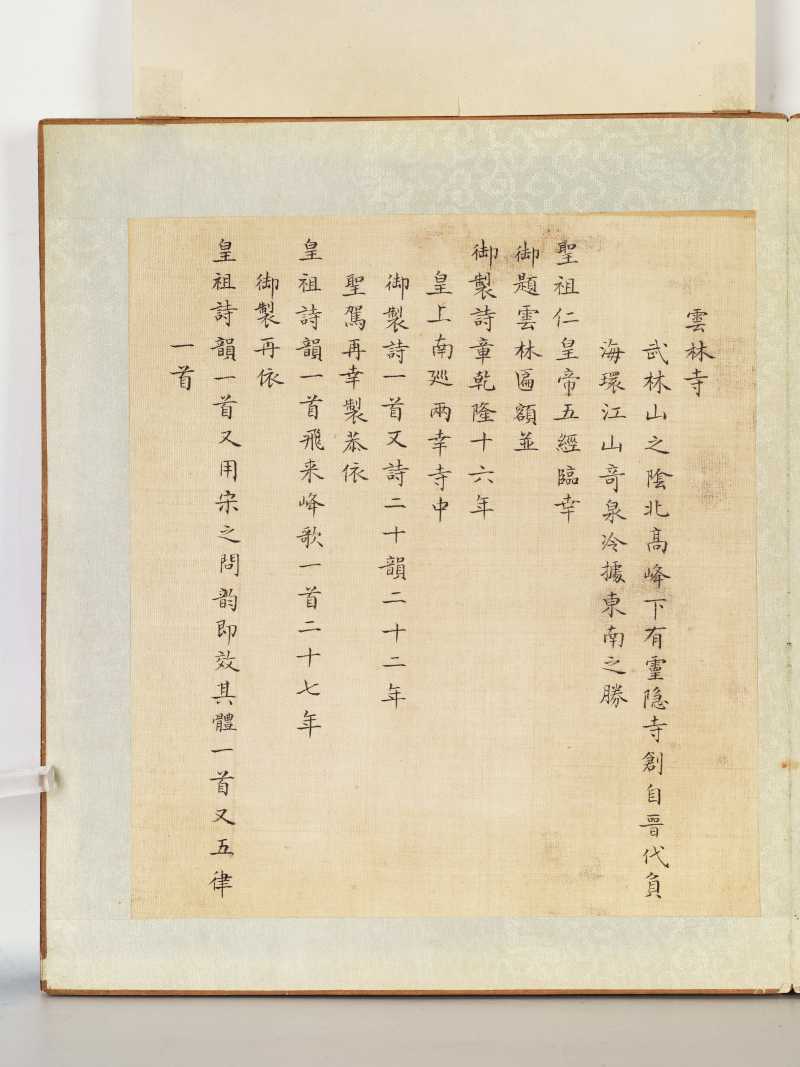 雲林寺
武林山之陰北高峰下有靈隐寺創自晉代負
海環江山竒泉冷據東南之勝
聖祖仁皇帝五經臨幸
御題雲林匾額並
御製詩章乾隆十六年
皇上南廵兩幸寺中
御製詩一首又詩二十韻二十二年
聖駕再幸製恭依
皇祖詩韻一首飛来峰歌一首二十七年
御製再依
皇祖詩韻一首又用宋之問韵即效其體一首又五律
一首